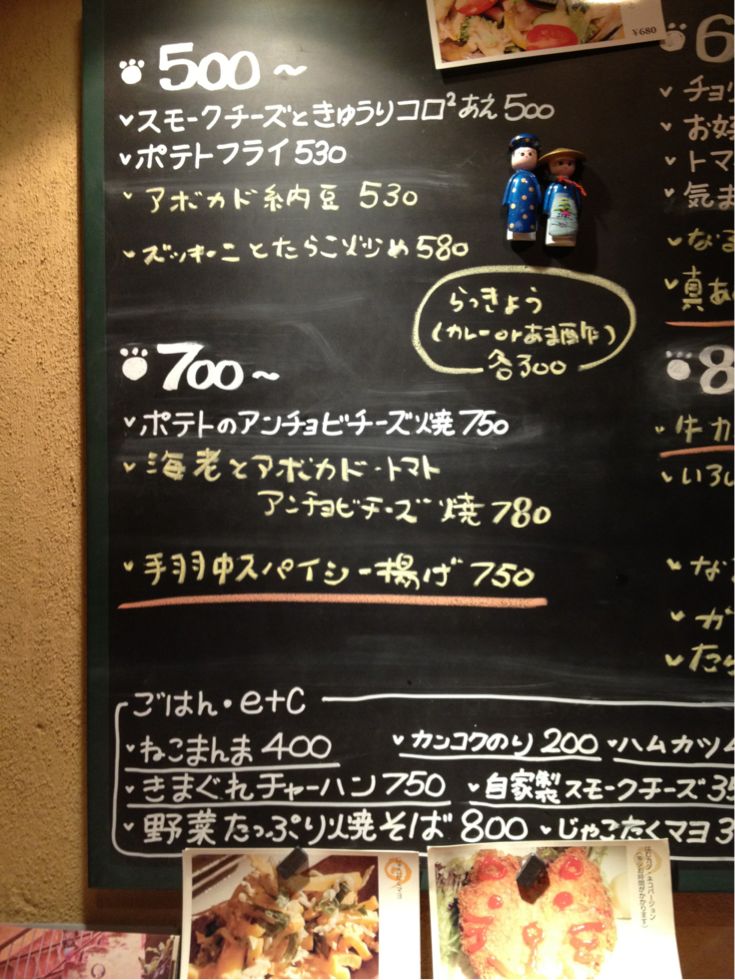 500～
スモークチーズときゅうりコロ²あえ 500
ポテトフライ 530
アボカド納豆 530
ズッキーニとたらこ炒め 580
らっきょう
(カレー or あま酢)
各300
700～
ポテトのアンチョビチーズ焼 750
海老とアボカド・トマト
アンチョビチーズ焼 780
手羽中スパイシー揚げ 750
ごはん・etc
ねこまんま 400
カンコクのり 200
ハムカツ 4
きまぐれチャーハン 750
自家製スモークチーズ 35
野菜たっぷり焼そば 800
じゃこたくマヨ 3
¥680
6
チョリ
お好
トマ
気ま
なる
真あ
8
牛カ
いろ
な
ガ
たら